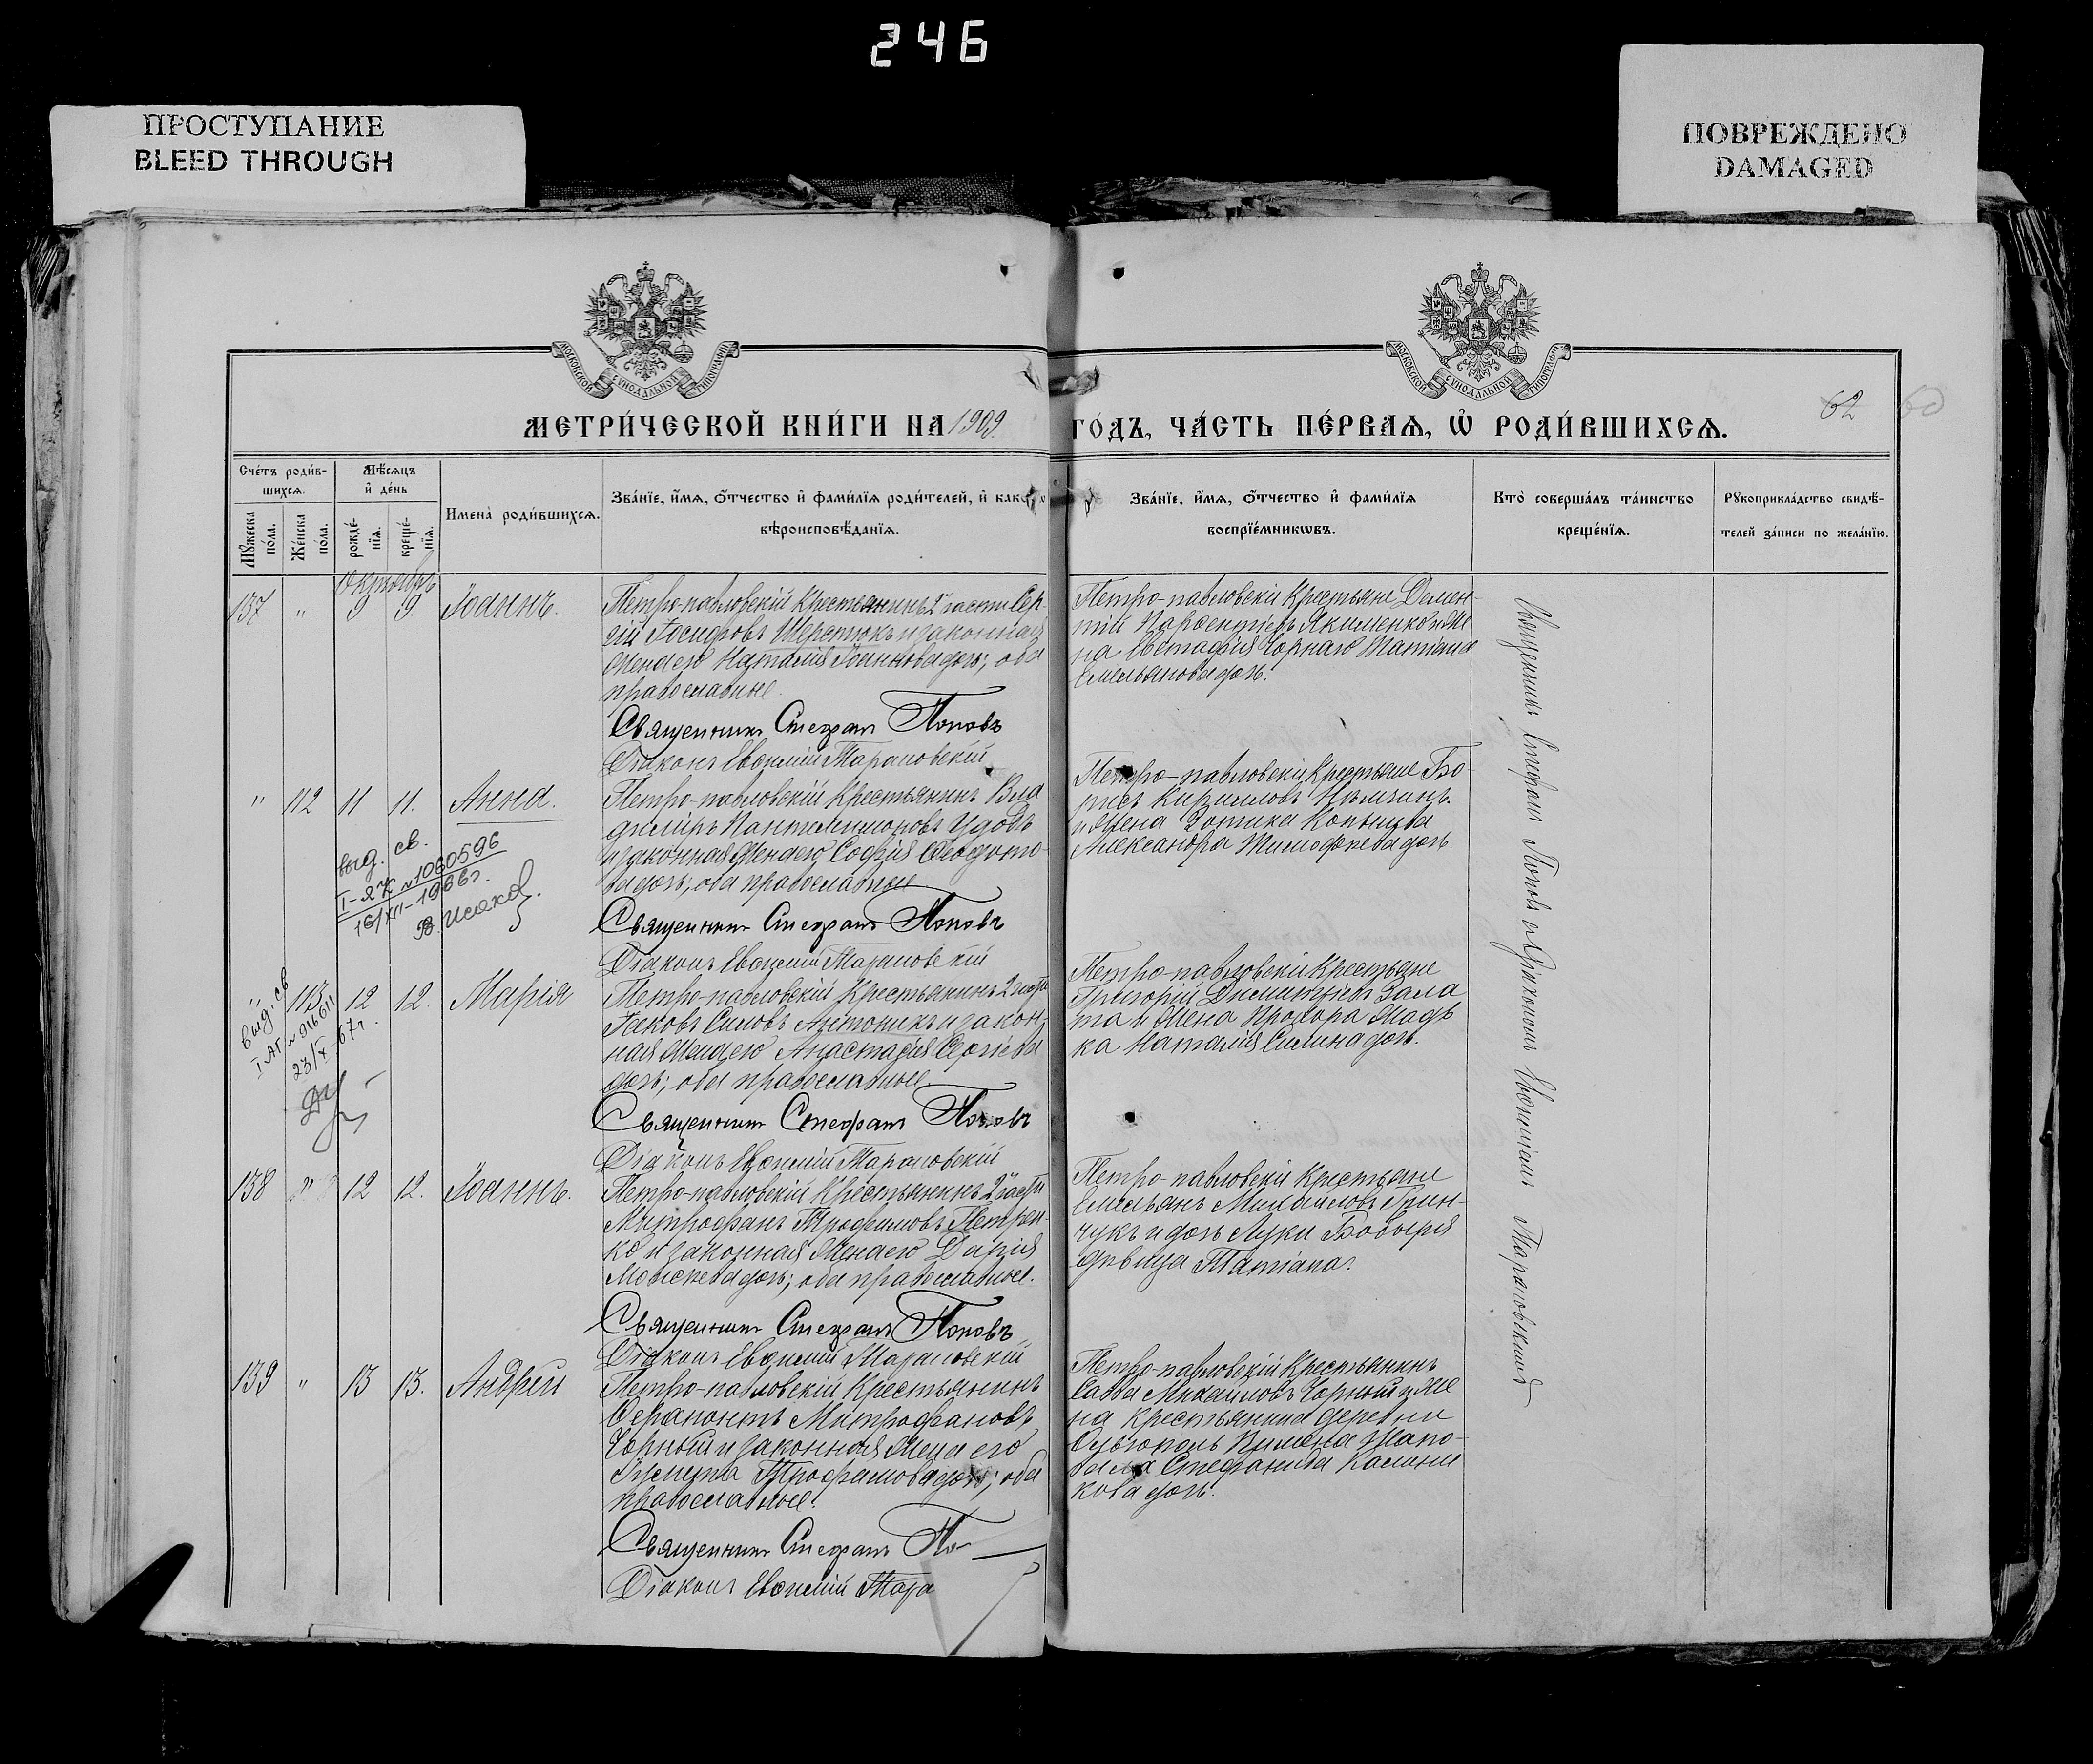 246
ПРОСТУПАНИЕ
BLEED THROUGH
ПОВРЕЖДЕНО
DAMAGED
МОСКОВСКОЙ СѴНОДАЛЬНОЙ ТИПОГРАФІИ
МОСКОВСКОЙ СѴНОДАЛЬНОЙ ТИПОГРАФІИ
62 60
МЕТРИ́ЧЕСКОЙ КНИ́ГИ НА 1909 ГО́ДЪ, ЧА́СТЬ ПЕ́РВАѦ, Ѡ҆ РОДИ́ВШИХСѦ.
Сче́тъ роди́в-
шихсѧ.
Мꙋ́жеска по́ла.
Же́нска по́ла.
Мѣ́сѧцъ
и҆ де́нь
рожде́-
нїѧ.
креще́-
нїѧ.
Имена̀ роди́вшихсѧ.
Зва́нїе, и҆́мѧ, ѻ҆́тчество и҆ фами́лїѧ роди́телей, и҆ како́
вѣроисповѣ́данїѧ.
Зва́нїе, и҆́мѧ, ѻ҆́тчество и҆ фами́лїѧ
воспрїе́мникѡвъ.
Кто̀ соверша́лъ та́инство
креще́нїѧ.
Рꙋкоприкла́дство свидѣ́-
телей за́писи по жела́нїю.
Октябрь
137 " 9 9. Іоаннъ.
Петро-павловскій крестьянинъ 2 части Сер-
гій Іосифовъ Шерстюкъ и законная
жена его Наталія Іоаннова дочь; оба
православные.
Священникъ Стефанъ Поповъ
Діаконъ Евѳимій Тарановскій
Петро-павловскіе крестьяне Демен-
тій Парѳентіевъ Якименко и же-
на Евстафія Чорнаго Татіана
Емельянова дочь.
" 112 11 11. Анна.
Петро-павловскій крестьянинъ Вла-
диміръ Пантелеимоновъ Удодъ
и законная жена его Софія Ѳеодото-
ва дочь; оба православные
Священникъ Стефанъ Поповъ
Діаконъ Евѳимій Тарановскій
Петро-павловскіе крестьяне Бо-
рисъ Кирилловъ
и жена Зотика
Александра Тимофеева дочь.
выд. св.
I-ЯК №1060596
16/XII-1966г.
В. Исаков
" 113 12 12. Марія
Петро-павловскій крестьянинъ 2 части
Іаковъ Силовъ Антоникъ и закон-
ная жена его Анастасія Сергіева
дочь; оба православные.
Священникъ Стефанъ Поповъ
Діаконъ Евѳимій Тарановскій
Петро-павловскіе крестьяне
Григорій Димитріевъ Зала-
та и жена Прохора
Наталія Силина дочь.
выд. св
23/X-67г.
138 " 12 12. Іоаннъ.
Петро-павловскій крестьянинъ 2 части
Митрофанъ Трофимовъ Петрен-
ко и законная жена его Дарія
Моисеева дочь; оба православные.
Священникъ Стефанъ Поповъ
Діаконъ Евѳимій Тарановскій
Петро-павловскіе крестьяне
Емельянъ Михайловъ Грин-
чукъ и дочь Луки Бобыря
дѣвица Татіана.
139 " 13 13. Андрей
Петро-павловскій крестьянинъ
Ѳерапонтъ Митрофановъ
Чорный и законная жена его
Трофимова дочь; оба
православные.
Священникъ Стефанъ По-
Діаконъ Евѳимій Тара
Петро-павловскій крестьянинъ
Савва Михайловъ Чорный и же-
на крестьянина деревни
Ольгополь Пимена Шапо-
вала Стефанида Калини-
кова дочь.
Священникъ Стефанъ Поповъ съ діакономъ Евѳиміемъ Тарановскимъ